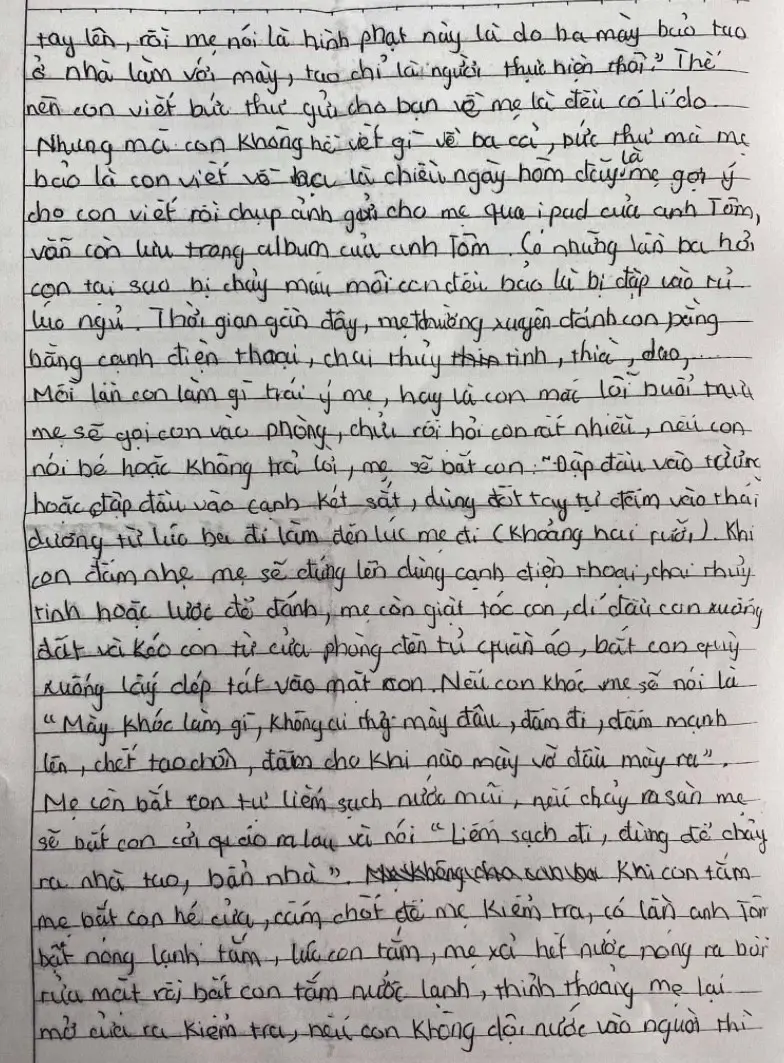 tay lên, rồi mẹ nói là hình phạt này là do ba mày bảo tao
ở nhà làm với mày, tao chỉ là người thực hiện thôi." Thế
nên con viết bức thư gửi cho bạn về mẹ là đều có lí do.
Nhưng mà con không hề viết gì về ba cả, bức thư mà mẹ
bảo là con viết về là chiều ngày hôm đấy là mẹ gợi ý
cho con viết rồi chụp ảnh gửi cho mẹ qua ipad của anh Tôm,
vẫn còn lưu trong album của anh Tôm. Có những lần ba hỏi
con tại sao bị chảy máu môi con đều bảo là bị đập vào tủ
lúc ngủ. Thời gian gần đây, mẹ thường xuyên đánh con bằng
bằng cạnh điện thoại, chai thủy tinh, thìa, dao,...
Mỗi lần con làm gì trái ý mẹ, hay là con mắc lỗi buổi trưa
mẹ sẽ gọi con vào phòng, chửi rồi hỏi con rất nhiều, nếu con
nói bé hoặc không trả lời, mẹ sẽ bắt con: "Đập đầu vào tường
hoặc đập đầu vào cạnh két sắt, dùng đốt tay tự đấm vào thái
dương từ lúc ba đi làm đến lúc mẹ đi (khoảng hai rưỡi). Khi
con đấm nhẹ mẹ sẽ đứng lên dùng cạnh điện thoại, chai thủy
tinh hoặc lược để đánh, mẹ còn giật tóc con, dí đầu con xuống
đất và kéo con từ cửa phòng đến tủ quần áo, bắt con quỳ
xuống lấy dép tát vào mặt con. Nếu con khóc mẹ sẽ nói là
"Mày khóc làm gì, không ai thg mày đâu, đấm đi, đấm mạnh
lên, chết tao chôn, đấm cho khi nào mày vỡ đầu mày ra".
Mẹ còn bắt con tự liếm sạch nước mũi, nếu chảy ra sàn mẹ
sẽ bắt con cởi quần áo ra lau và nói "Liếm sạch đi, đừng để chảy
ra nhà tao, bẩn nhà". Khi con tắm
mẹ bắt con hé cửa, cấm chốt để mẹ kiểm tra, có lần anh Tôm
bật nóng lạnh tắm, lúc con tắm, mẹ xả hết nước nóng ra bồn
rửa mặt rồi bắt con tắm nước lạnh, thỉnh thoảng mẹ lại
mở cửa ra kiểm tra, nếu con không dội nước vào người thì